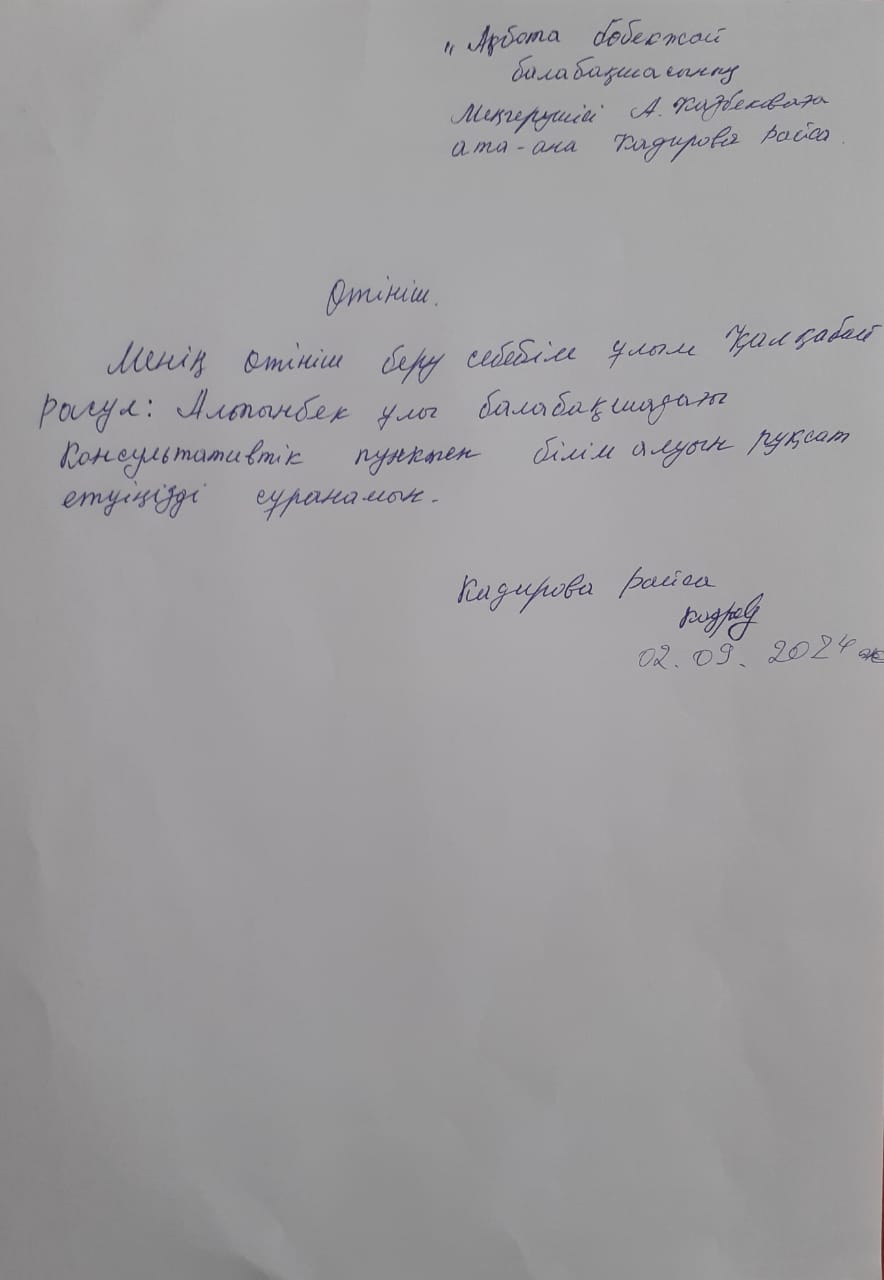 "Ақбота бөбекжай
балабақшасының
Меңгерушісі А. Казбековаға
ата-ана Кадирова Райса.
Өтініш.
Менің өтініш беру себебім ұлым Қалқабай
Расул: Алтынбек ұлы балабақшадағы
Консультативтік пунктен білім алуын рұқсат
етуіңізді сұранамын.
Кадирова Райса
02.09.2024 ж